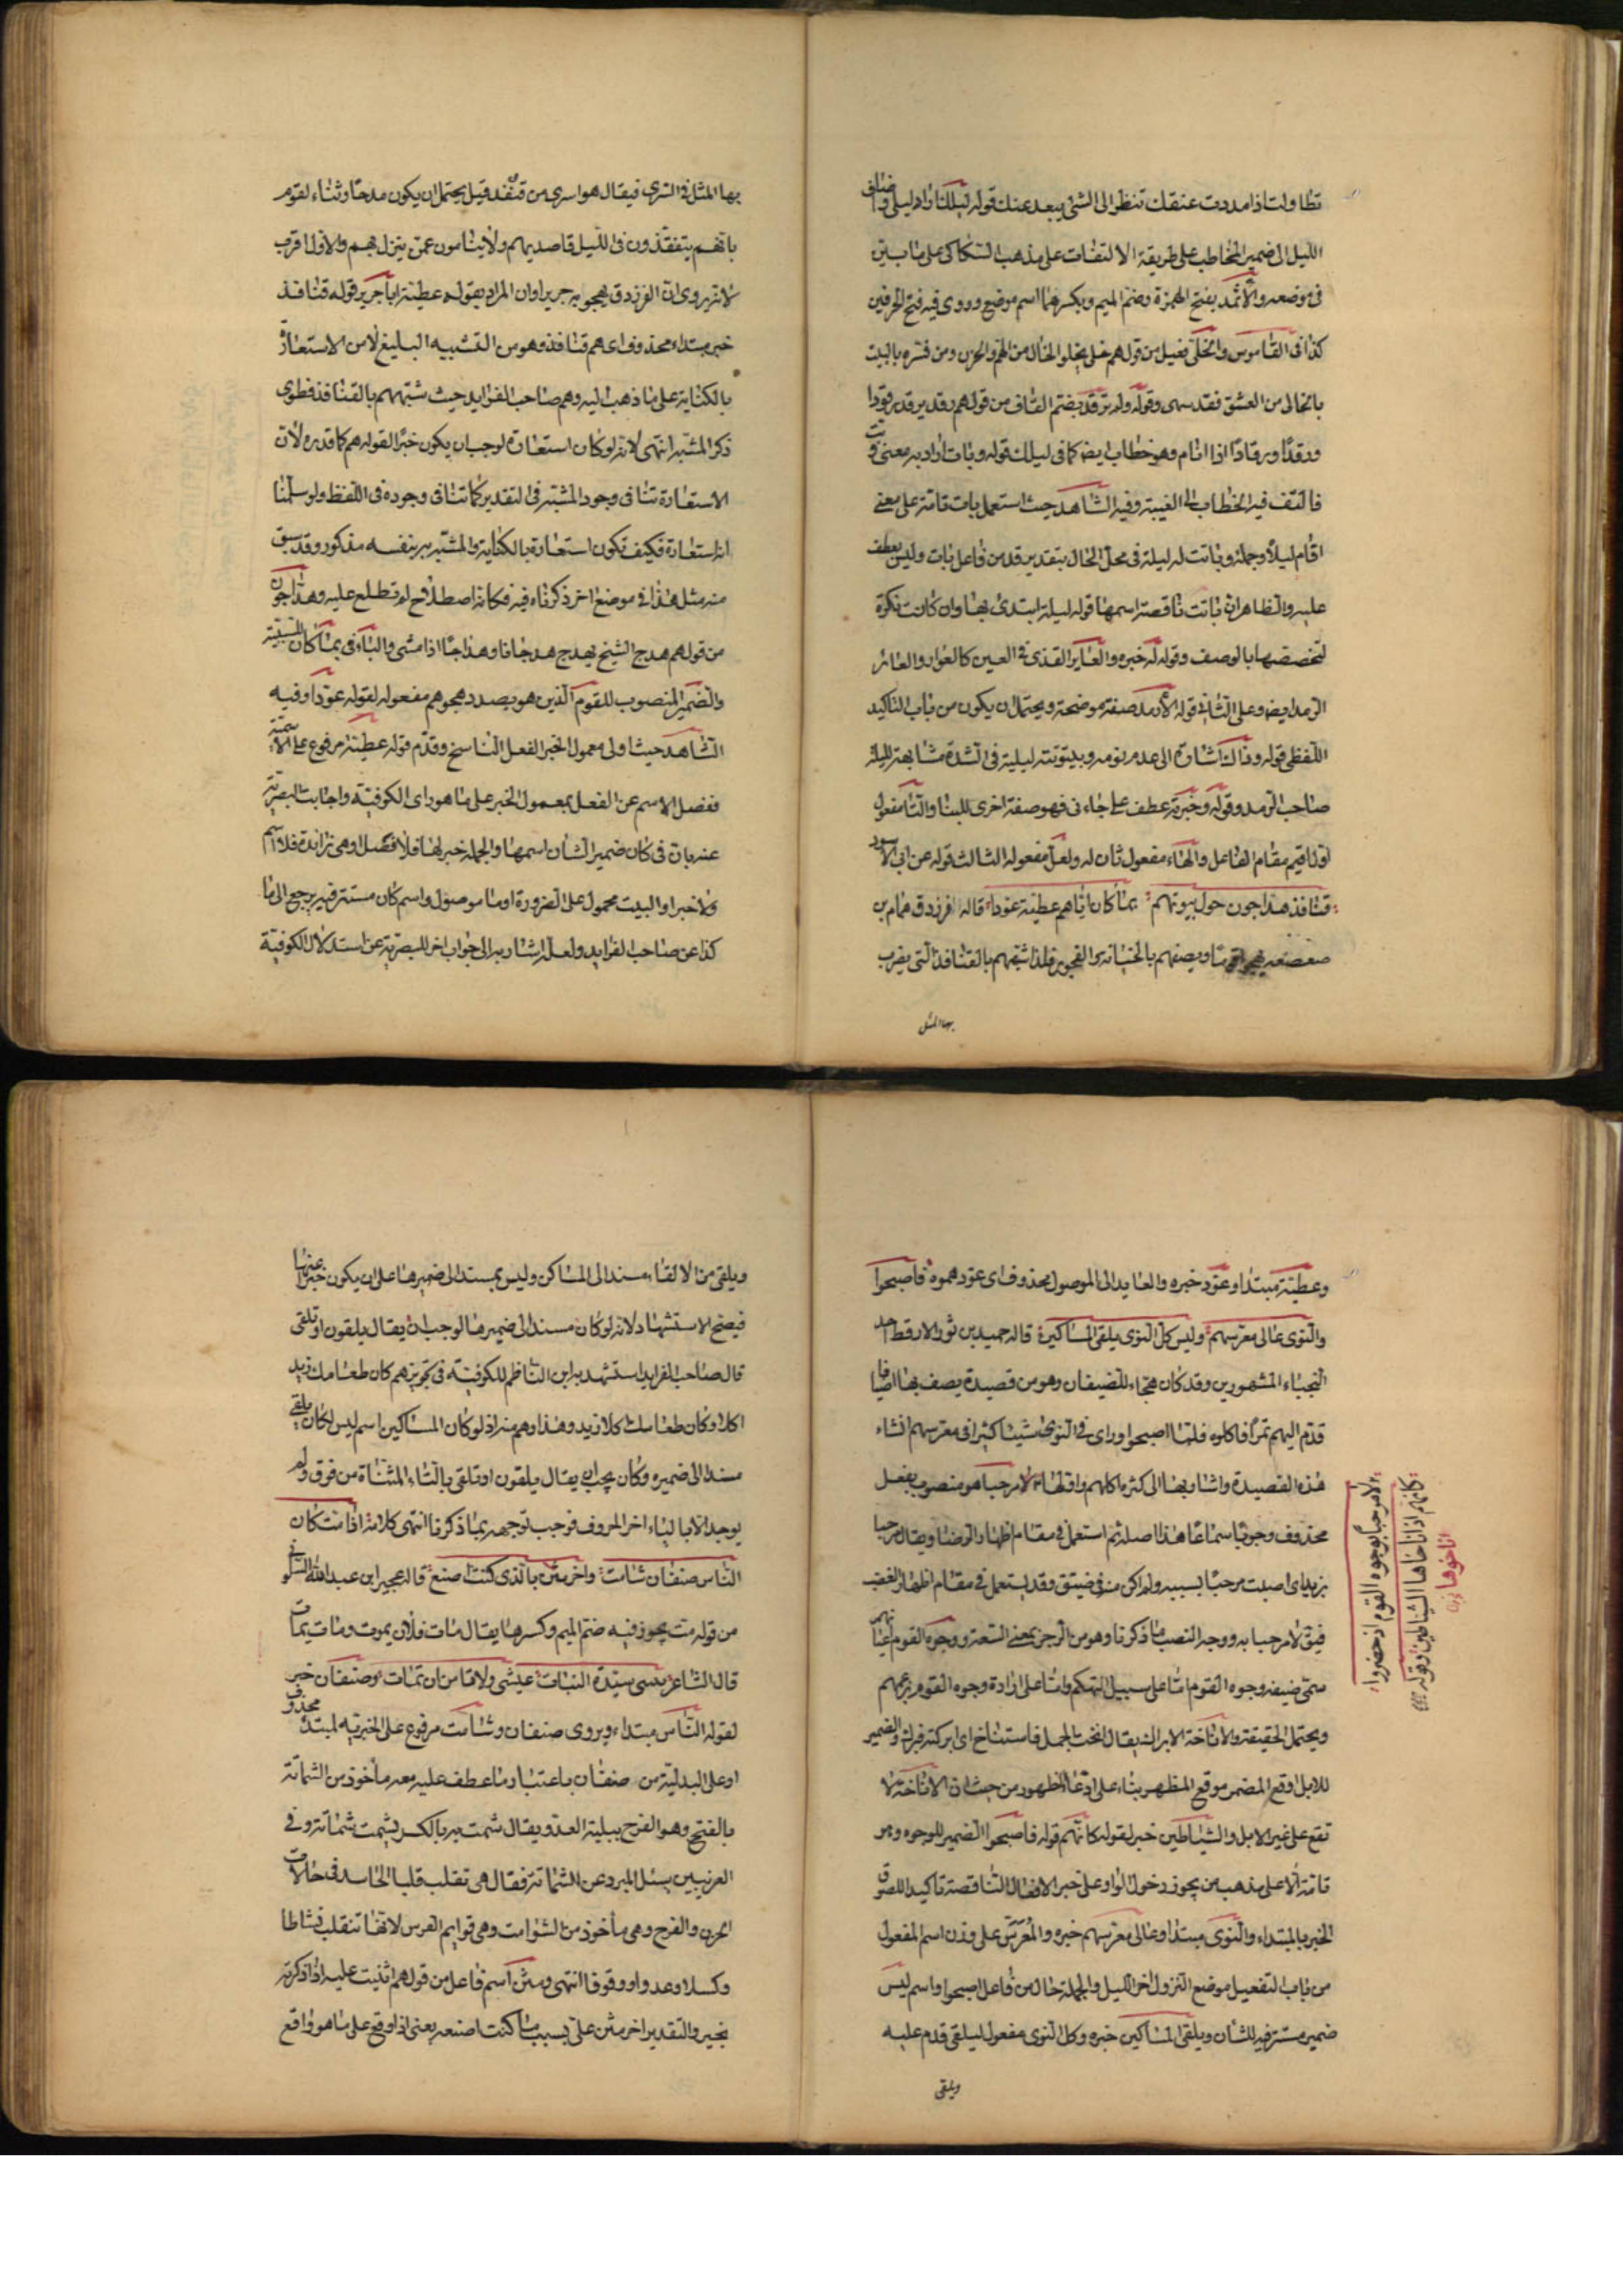 تطاولت اذا مددت عنقك تنظر الى الشئ يبعد عنك قوله ليلك اراد ليلى واضاف
الليل الى ضمير المخاطب على طريقة الالتفات على مذهب السكاكى على ما بين
فى موضعه والاثمد بفتح الهمزة وضم الميم وبكسرهما اسم موضع وروى فيه فتح الحرفين
كذا فى القاموس والخلى فعيل من قولهم خلى يخلو الخال من الهم والحزن ومن فسره بالبيت
بالخالى من العشق فقد سهى وقوله ولم ترقد بضم القاف من قولهم رقد يرقد رقودا
ورقدا ورقادا اذا انام وهو خطاب ايضا كما فى ليلك قوله وبات اراد به معنى وبت
فالتفت فيه الخطاب الى الغيبة وفيه الشاهد حيث استعمل بات تامة على معنى
اقام ليلا وجملة وباتت له ليلة فى محل الحال بتقدير قد من فاعل بات وليس بعطف
عليه والظاهر ان باتت ناقصة اسمها قوله ليلة ابتدئ بها وان كانت نكرة
لتخصصها بالوصف وقوله له خبره والعاير القذى فى العين كالعوار والعائر
الرمد ايضا وعلى الثانى قوله الارمد صفة موضحة ويحتمل ان يكون من باب التاكيد
اللفظى قوله وذلك اشارة الى عدم نومه وبيتوتته ليلية فى الشدة مشابهة لليلة
صاحب الرمد وقوله وخبرته عطف على جاءنى فهو صفة اخرى للبناء والتاء مفعول
اول اقيم مقام الفاعل والهاء مفعول ثان له ولعل مفعوله الثالث قوله عن ابى الاسود
قنافذ هداجون حول بيوتهم بما كان اياهم عطية عودا قاله فرزدق همام بن
صعصعه يهجو قوما ويصفهم بالخيانة والفجور فلذا شبههم بالقنافذ التى يضرب
بها المثل
بها المثل فى السرى فيقال هو اسرى من قنفذ قيل يحتمل ان يكون مدحا وثناء لقوم
بانهم يتفقدون فى الليل قاصديهم ولا ينامون عمن ينزل بهم والاول اقرب
لانه يروى ان الفرزدق يهجو به جريرا وان المراد بقوله عطية ابا جرير قوله قنافذ
خبر مبتداء محذوف اى هم قنافذ وهو من التشبيه البليغ لا من الاستعارة
بالكناية على ما ذهب اليه وهم صاحب الفرايد حيث شبههم بالقنافذ فطوى
ذكر المشبه انتهى لانه لو كان استعارة لوجب ان يكون خبرا لقوله هم كما قدره لان
الاستعارة تنافى وجود المشبه فى التقدير كما تنافى وجوده فى اللفظ ولو سلمنا
انه استعارة فكيف تكون استعارة بالكناية والمشبه به بنفسه مذكور وقد سبق
منه مثل هذا فى موضع اخر ذكرناه فيه فكانه اصطلاح لم نطلع عليه وهداجون
من قولهم هدج الشيخ يهدج هدجانا وهداجا اذا مشى والباء فى بما كان للسببية
والضمير المنصوب للقوم الذين هو بصدد هجوهم مفعوله لقوله عودا وفيه
الشاهد حيث اولى معمول الخبر الفعل الناسخ وقدم قوله عطية مرفوع على الاسمية
ففصل الاسم عن الفعل بمعمول الخبر على ما هو راى الكوفية واجابت البصرية
عنه بان فى كان ضمير الشان اسمها والجملة خبر لها فلا فصل او هى زائدة فلا اسم
ولا خبر او البيت محمول على الضرورة او ما موصول واسم كان مستتر فيه يرجع الى ما
كذا عن صاحب الفرايد ولعله اشار به الى جواب اخر للبصرية عن استدلال الكوفية
وعطية مبتدا وعود خبره والعايد الى الموصول محذوف اى عودهموه فاصبحوا
والنوى عالى معرسهم وليس كل النوى يلقى المساكين قاله حميد بن ثور الارقط احد
البخلاء المشهورين وقد كان هجاء للضيفان وهو من قصيدة يصف بها اضيافا
قدم اليهم تمرا فاكلوه فلما اصبحوا وراى فى النوى شيئا كثيرا فى معرسهم انشاء
هذه القصيدة واشار بها الى كثرة اكلهم واولها لا مرحبا هو منصوب بفعل
محذوف وجوبا سماعا هذا اصله ثم استعمل فى مقام اظهار الرضا ويقال مرحبا
بزيد اى اصبت مرحبا بسببه ولم اكن من فى ضيق وقد يستعمل فى مقام اظهار الغضب
فيق لا مرحبا به ووجه النصب ما ذكرنا وهو من الرحب بمعنى السعة ووجوه القوم اعيانهم
سمى ضيفه وجوه القوم اما على سبيل التهكم واما على ارادة وجوه القوم بزعمهم
ويحتمل الحقيقة والاناخة الابراك يقال انخت الجمل فاستناخ اى ابركته فبرك والضمير
للابل اوقع المضمر موقع المظهر بناء على ادعاء الظهور من حيث ان الاناخة لا
تقع على غير الابل والشياطين خبر لقوله كانهم قوله فاصبحوا الضمير للوجوه وهو
تامة الا على مذهب من يجوز دخول الواو على خبر الافعال الناقصة تاكيد اللصوق
الخبر بالمبتداء والنوى مبتدا وعالى معرسهم خبره والمعرس على وزن اسم المفعول
من باب التفعيل موضع النزول اخر الليل والجملة حال من فاعل اصبحوا واسم ليس
ضمير مستتر فيه للشان ويلقى المساكين خبره وكل النوى مفعول ليلقى قدم عليه
ويلقى
لا مرحبا بوجوه القوم اذ حضروا
كانهم اذ اناخاها الشياطين وقوله
اناخوها
ويلقى من الالقاء مسند الى المساكين وليس بمسند الى ضميرها على ان يكون خبرا عنها
فيصح الاستشهاد لانه لو كان مسندا الى ضميرها لوجب ان يقال يلقون او تلقى
قال صاحب الفرايد استشهد به ابن الناظم للكوفية فى تجويزهم كان طعامك زيد
اكلا وكان طعامك اكلا زيد وهذا وهم منه اذ لو كان المساكين اسم ليس لكان يلقى
مسندا الى ضميره وكان يجب ان يقال يلقون او تلقى بالتاء المثناة من فوق ولم
يوجد الا بالياء اخر الحروف فوجب توجيهه بما ذكرنا انتهى كلامه اذا مت كان
الناس صنفان شامت واخر مثن بالذى كنت اصنع قاله عجير ابن عبد الله السلولى
من قوله مت يجوز فيه ضم الميم وكسرها يقال مات فلان يموت ومات يمات
قال الشاعر بنيتى سيدة البنات عيشى ولا نامن ان تمات وصنفان خبر
لقوله الناس مبتداء ويروى صنفان وشامت مرفوع على الخبرية لمبتدا محذوف
او على البدلية من صنفان باعتبار ما عطف عليه معه ماخوذ من الشماتة
بالفتح وهو الفرح ببلية العدو يقال شمت به بالكسر يشمت شماتة وفى
الغريبين سئل المبرد عن الشماتة فقال هى تقلب قلب الحاسد فى حالات
الحزن والفرح وهى ماخوذ من الشوامت وهى قوايم الفرس لانها تنقلب نشاطا
وكسلا وعدوا ووقوفا انتهى ومثن اسم فاعل من قولهم اثنيت عليه اذا ذكرته
بخير والتقدير اخر مثن على بسبب ما كنت اصنعه يعنى اذا وقع على ما هو واقع